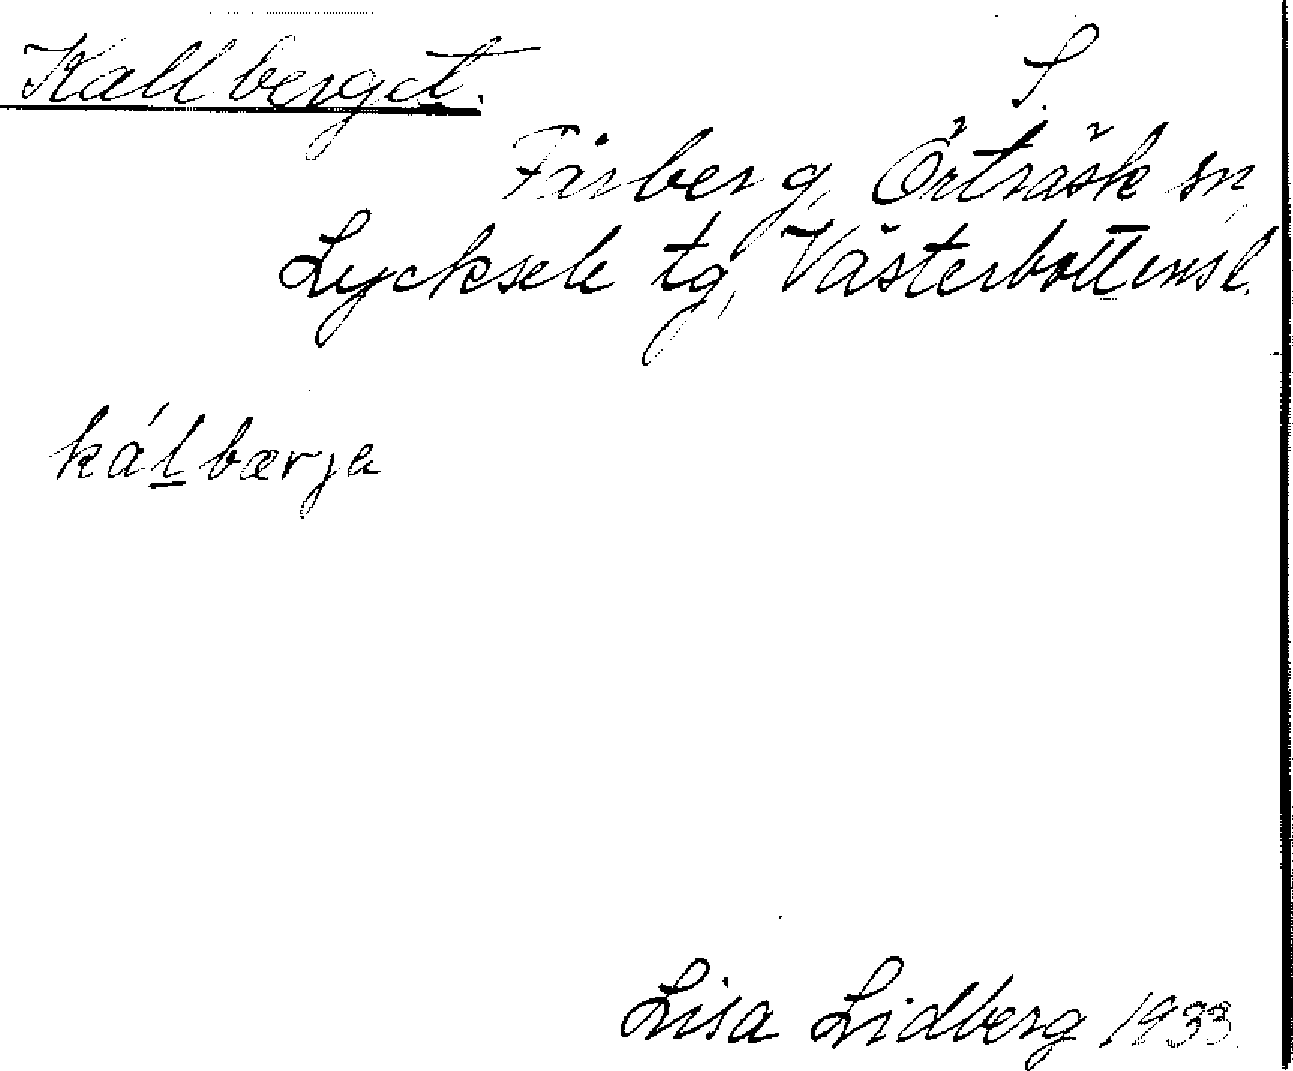 Kallberget. S.
Fårberg, Örträsk sn,
Lycksele tg, Västerbottensl.
ká´l̲bærja
Lisa Lidberg 1933.